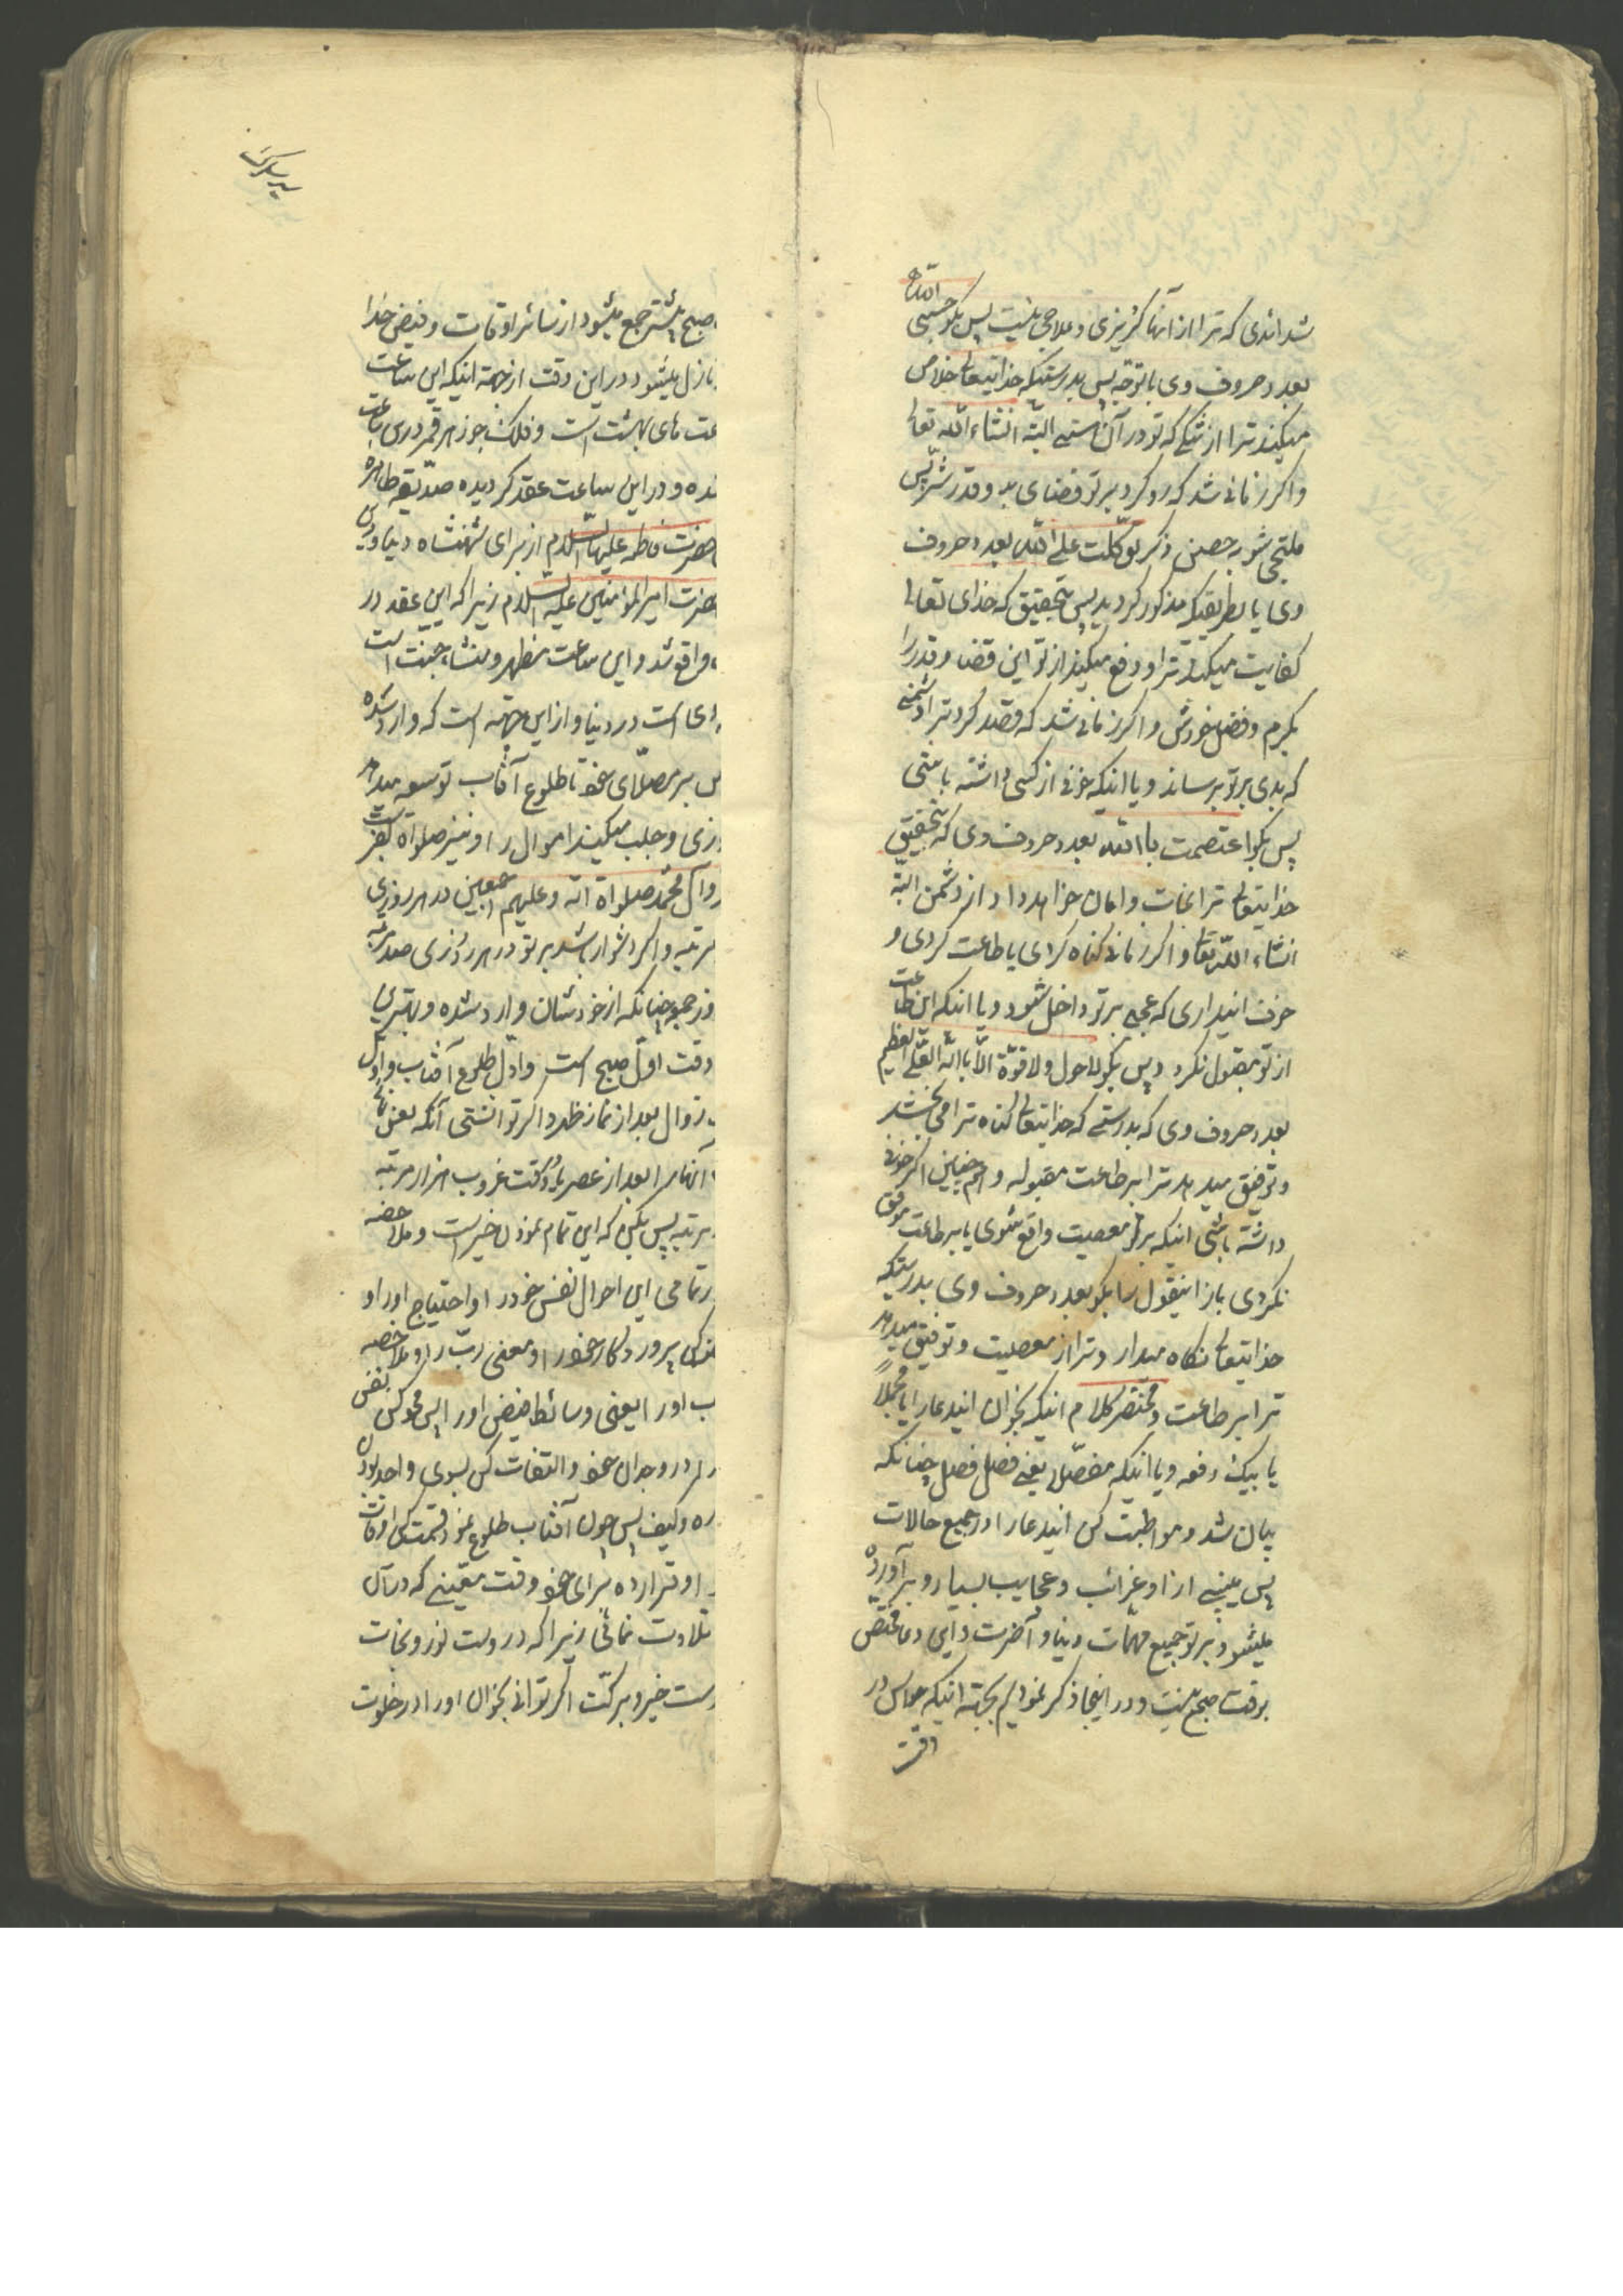 شدائدی که ترا از آنها گریزی و علاجی نیست پس بگو حسبی الله
بعدد حروف وی با توجه پس بدرستیکه خدایتعالی خلاص
میکند ترا از تنگی که تو در آن هستی البته انشاء الله تعالی
و اگر زمانی شد که رو کرد بر تو قضای بد و قدر شر پس
ملتجی شو به حصن ذکر توکلت علی الله بعدد حروف
وی یا بطریقیکه مذکور گردید پس بتحقیق که خدای تعالی
کفایت میکند ترا و دفع میکند از تو این قضا و قدر را
بکرم و فضل خودش و اگر زمانی شد که قصد کرد ترا دشمنی
که بدی بر تو برساند و یا اینکه خوفی از کسی داشته باشی
پس بگو اعتصمت باالله بعدد حروف وی که بتحقیق
خدایتعالی ترا نجات و امان خواهد داد از دشمن البته
انشاء الله تعالی و اگر زمانی گناه کردی یا طاعت کردی و
خوف اینداری که عجبی بر تو داخل شود و یا اینکه این طاعت
از تو مقبول نگردد پس بگو لا حول ولا قوة الا باالله العلی العظیم
بعدد حروف وی که بدرستی که خدایتعالی گناه ترا می بخشد
و توفیق میدهد ترا بر طاعت مقبوله و هم چنین اگر خوفی
داشته باشی اینکه بر معصیت واقع شوی یا بر طاعت موفق
نگردی باز اینقول را بگو بعدد حروف وی بدرستیکه
خدایتعالی نگاه میدارد ترا از معصیت و توفیق میدهد
ترا بر طاعت و مختصر کلام اینکه بخوان ایندعا را یا مجملاً
یا بیک دفعه و یا اینکه مفصل یعنی فصل فصل چنانکه
بیان شد و مواظبت کن ایندعا را در جمیع حالات
پس ببینی از او غرائب و عجایب بسیار و برآورده
میشود بر تو جمیع مهمات دنیا و آخرت و این دعا مختص
بوقت صبح نیست و در اینجا ذکر نمودیم بجهة اینکه حواس در
وقت
صبح بیشتر جمع میشود از سائر اوقات و فیض خدا
نازل میشود در این وقت از جهة اینکه این ساعت
عت های بهشت است و فلک جوزهر قمر در این ساعت
شده و در این ساعت عقد گردیده صدیقه طاهره
حضرت فاطمه علیها السلام از برای شهنشاه دنیا و دین
حضرت امیر المؤمنین علیه السلام زیرا که این عقد در
واقع شد و این ساعت مظهر و منشاء جنت است
ی است در دنیا و از این جهة است که وارد شده
س بر مصلای خود تا طلوع آفتاب توسعه میدهد
وزی و جلب میکند اموال را و نیز صلوات بفرست
و آل محمد صلواة الله و علیهم اجمعین در هر روزی
مرتبه و اگر دشوار باشد بر تو در هر روزی صد مرتبه
وز جمعه چنانکه از خودشان وارد شده و بهترین
وقت اول صبح است و اول طلوع آفتاب و اول
زوال بعد از نماز ظهر و اگر توانستی آنکه بعض
آنها را بعد از عصر یا وقت غروب هزار مرتبه
مرتبه پس بکن که این تمام نمودن خیر است و ملاحظه
در تمامی این احوال نفس خود را و احتیاج او را و
کن پروردگار خود را و معنی رب را و ملاحظه
ب او را یعنی وسائط فیض او را پس محو کن نفس
را در وجدان خود و التفات کن بسوی واحد بودن
ره و کیف پس چون آفتاب طلوع نمود قسمت کن اوقات
و قرار ده برای خود وقت معینی که در آن
تلاوت نمائی زیرا که در اوست نور و نجات
ست خیر و برکت اگر توانی بخوان او را در خلوت